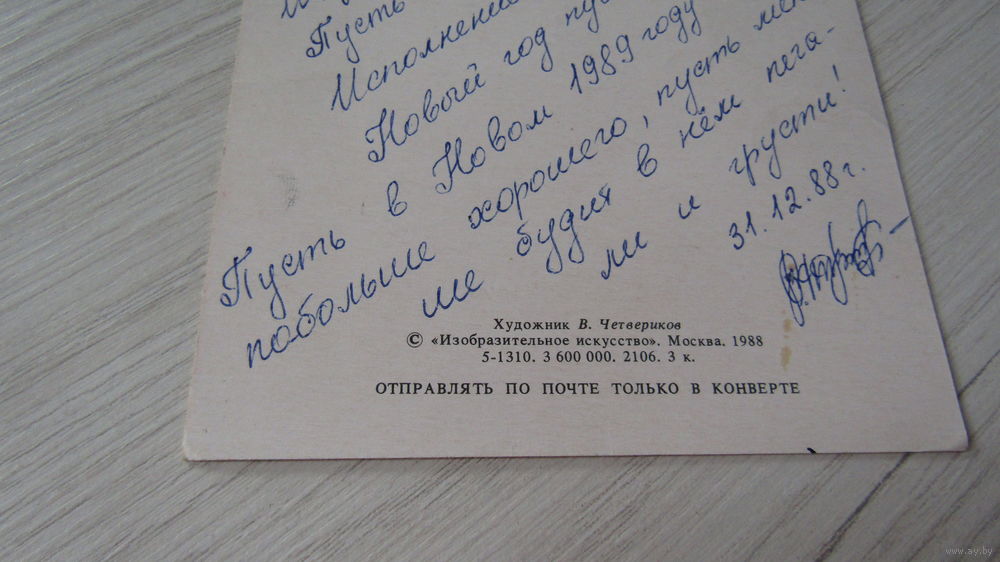 Пусть
Исполнение
Новый год
в Новом 1989 году
Пусть
побольше хорошего, пусть
ше будия в нём печа-
ли и грусти!
31.12.88 г.
Художник В. Четвериков
© «Изобразительное искусство». Москва. 1988
5-1310. 3 600 000. 2106. 3 к.
ОТПРАВЛЯТЬ ПО ПОЧТЕ ТОЛЬКО В КОНВЕРТЕ
www.ay.by